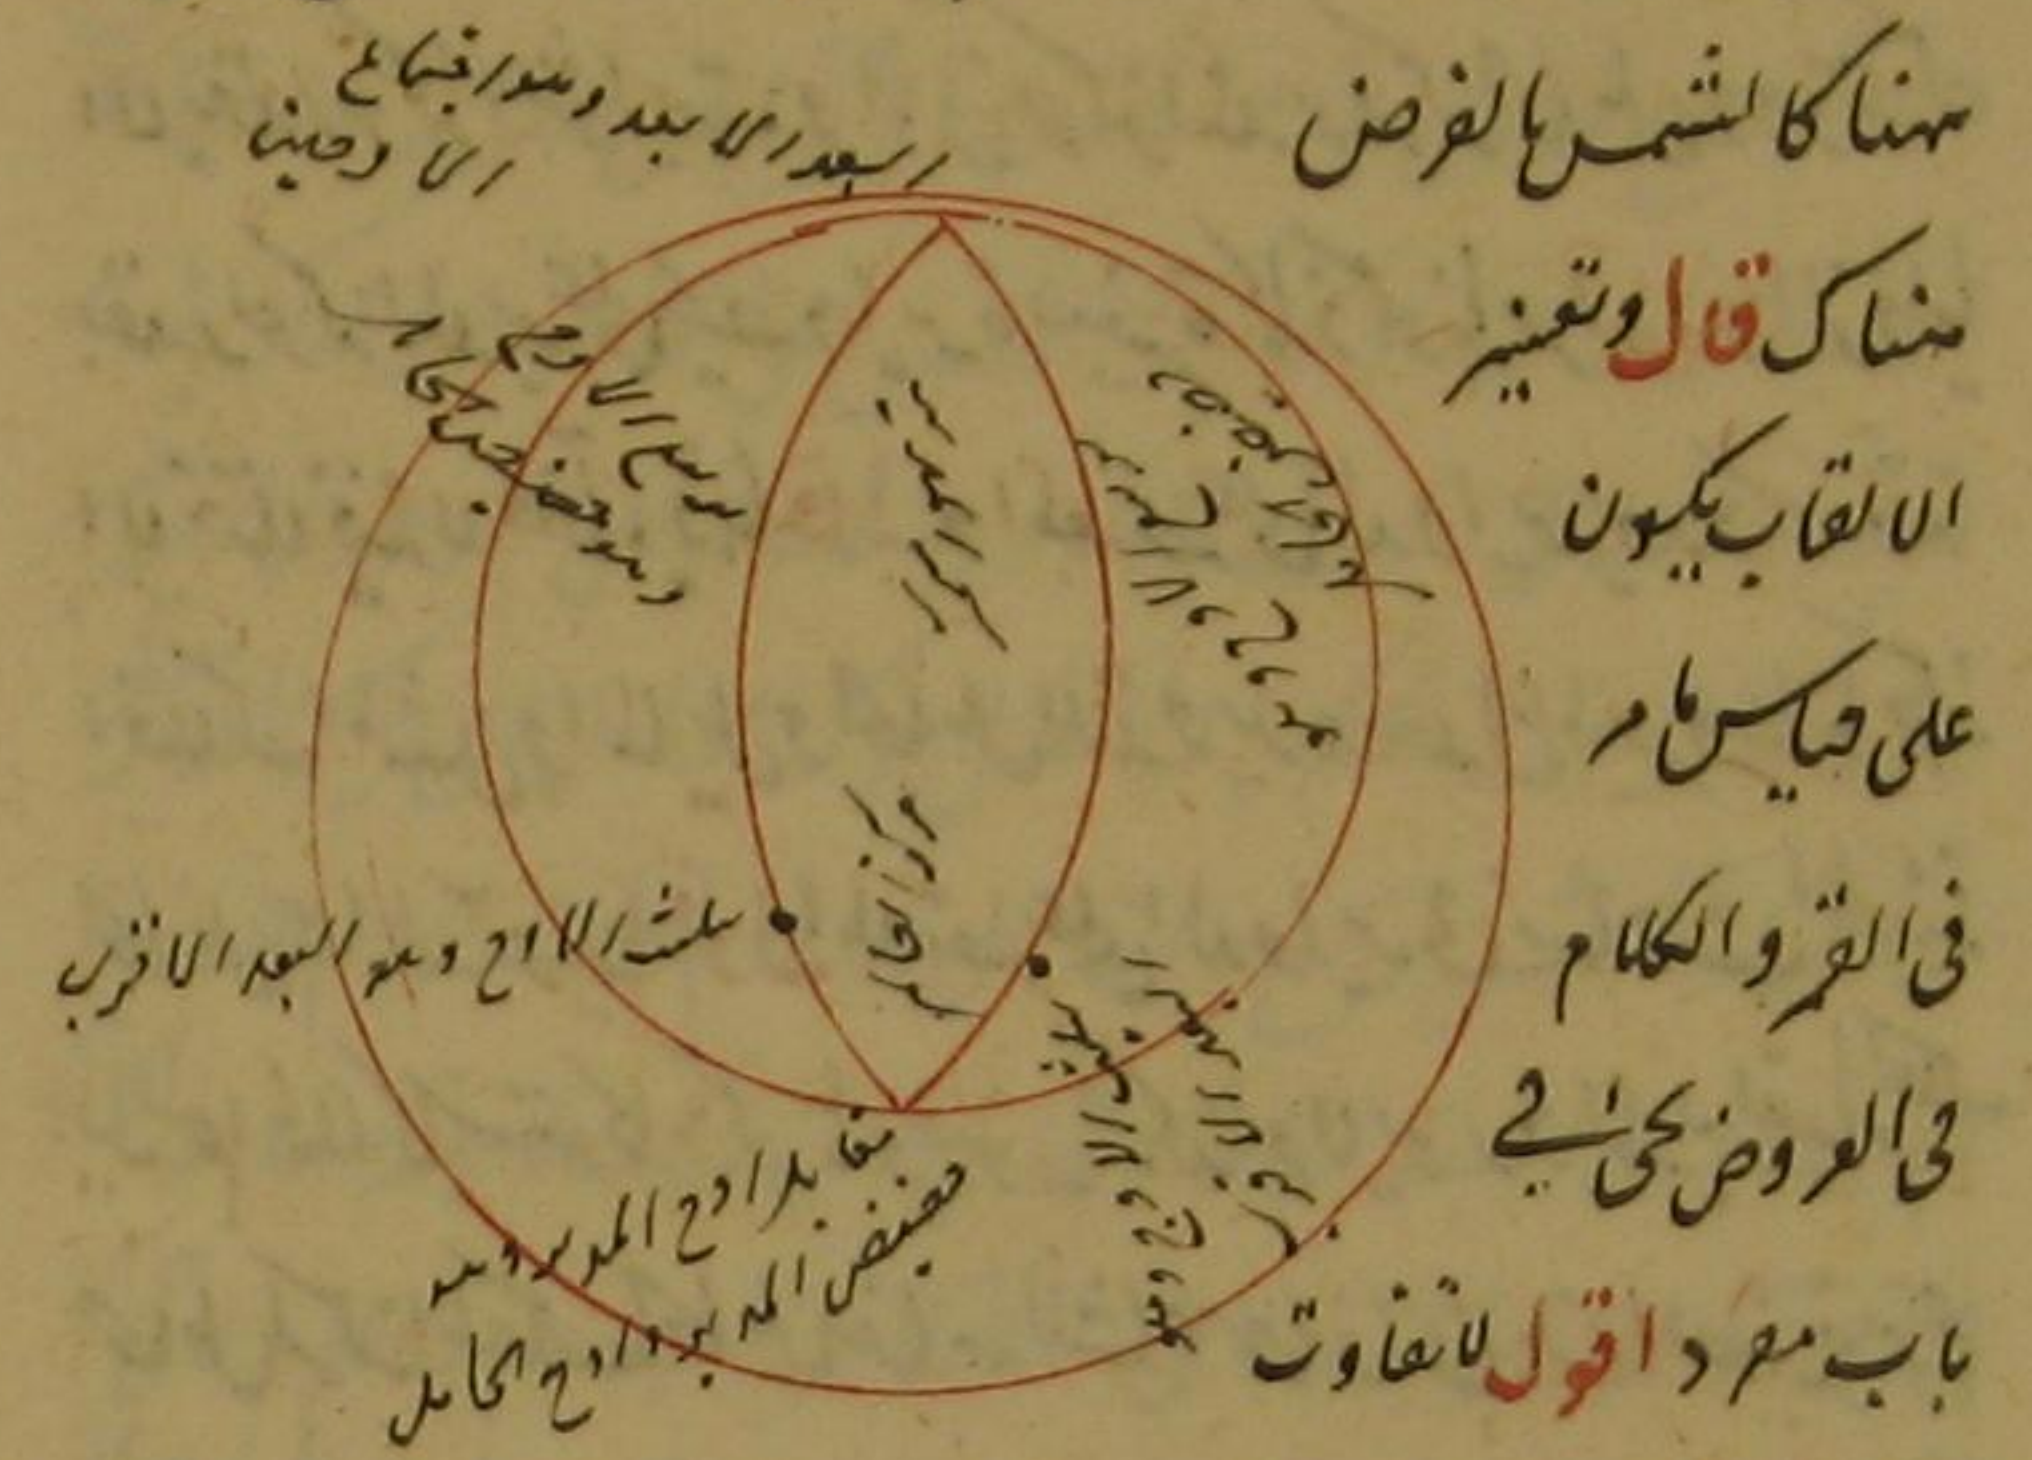 ههنا كالشمس بالفرض
هناك قال وتعيين
الالقاب يكون
على قياس ما مر
فى القمر والكلام
فى العروض يجئ فى
باب مفرد اقول لا تفاوت
البعد الابعد وهو اجتماع
الاوجين
تربيع الاوج
وهو حضيض الحامل
مركز المدير
تربيع الاوج
مركز الحامل
تثليث الاوج وهو البعد الاقرب
تثليث الاوج وهو
البعد الاقرب
مقابل اوج المدير وهو
حضيض المدير واوج الحامل